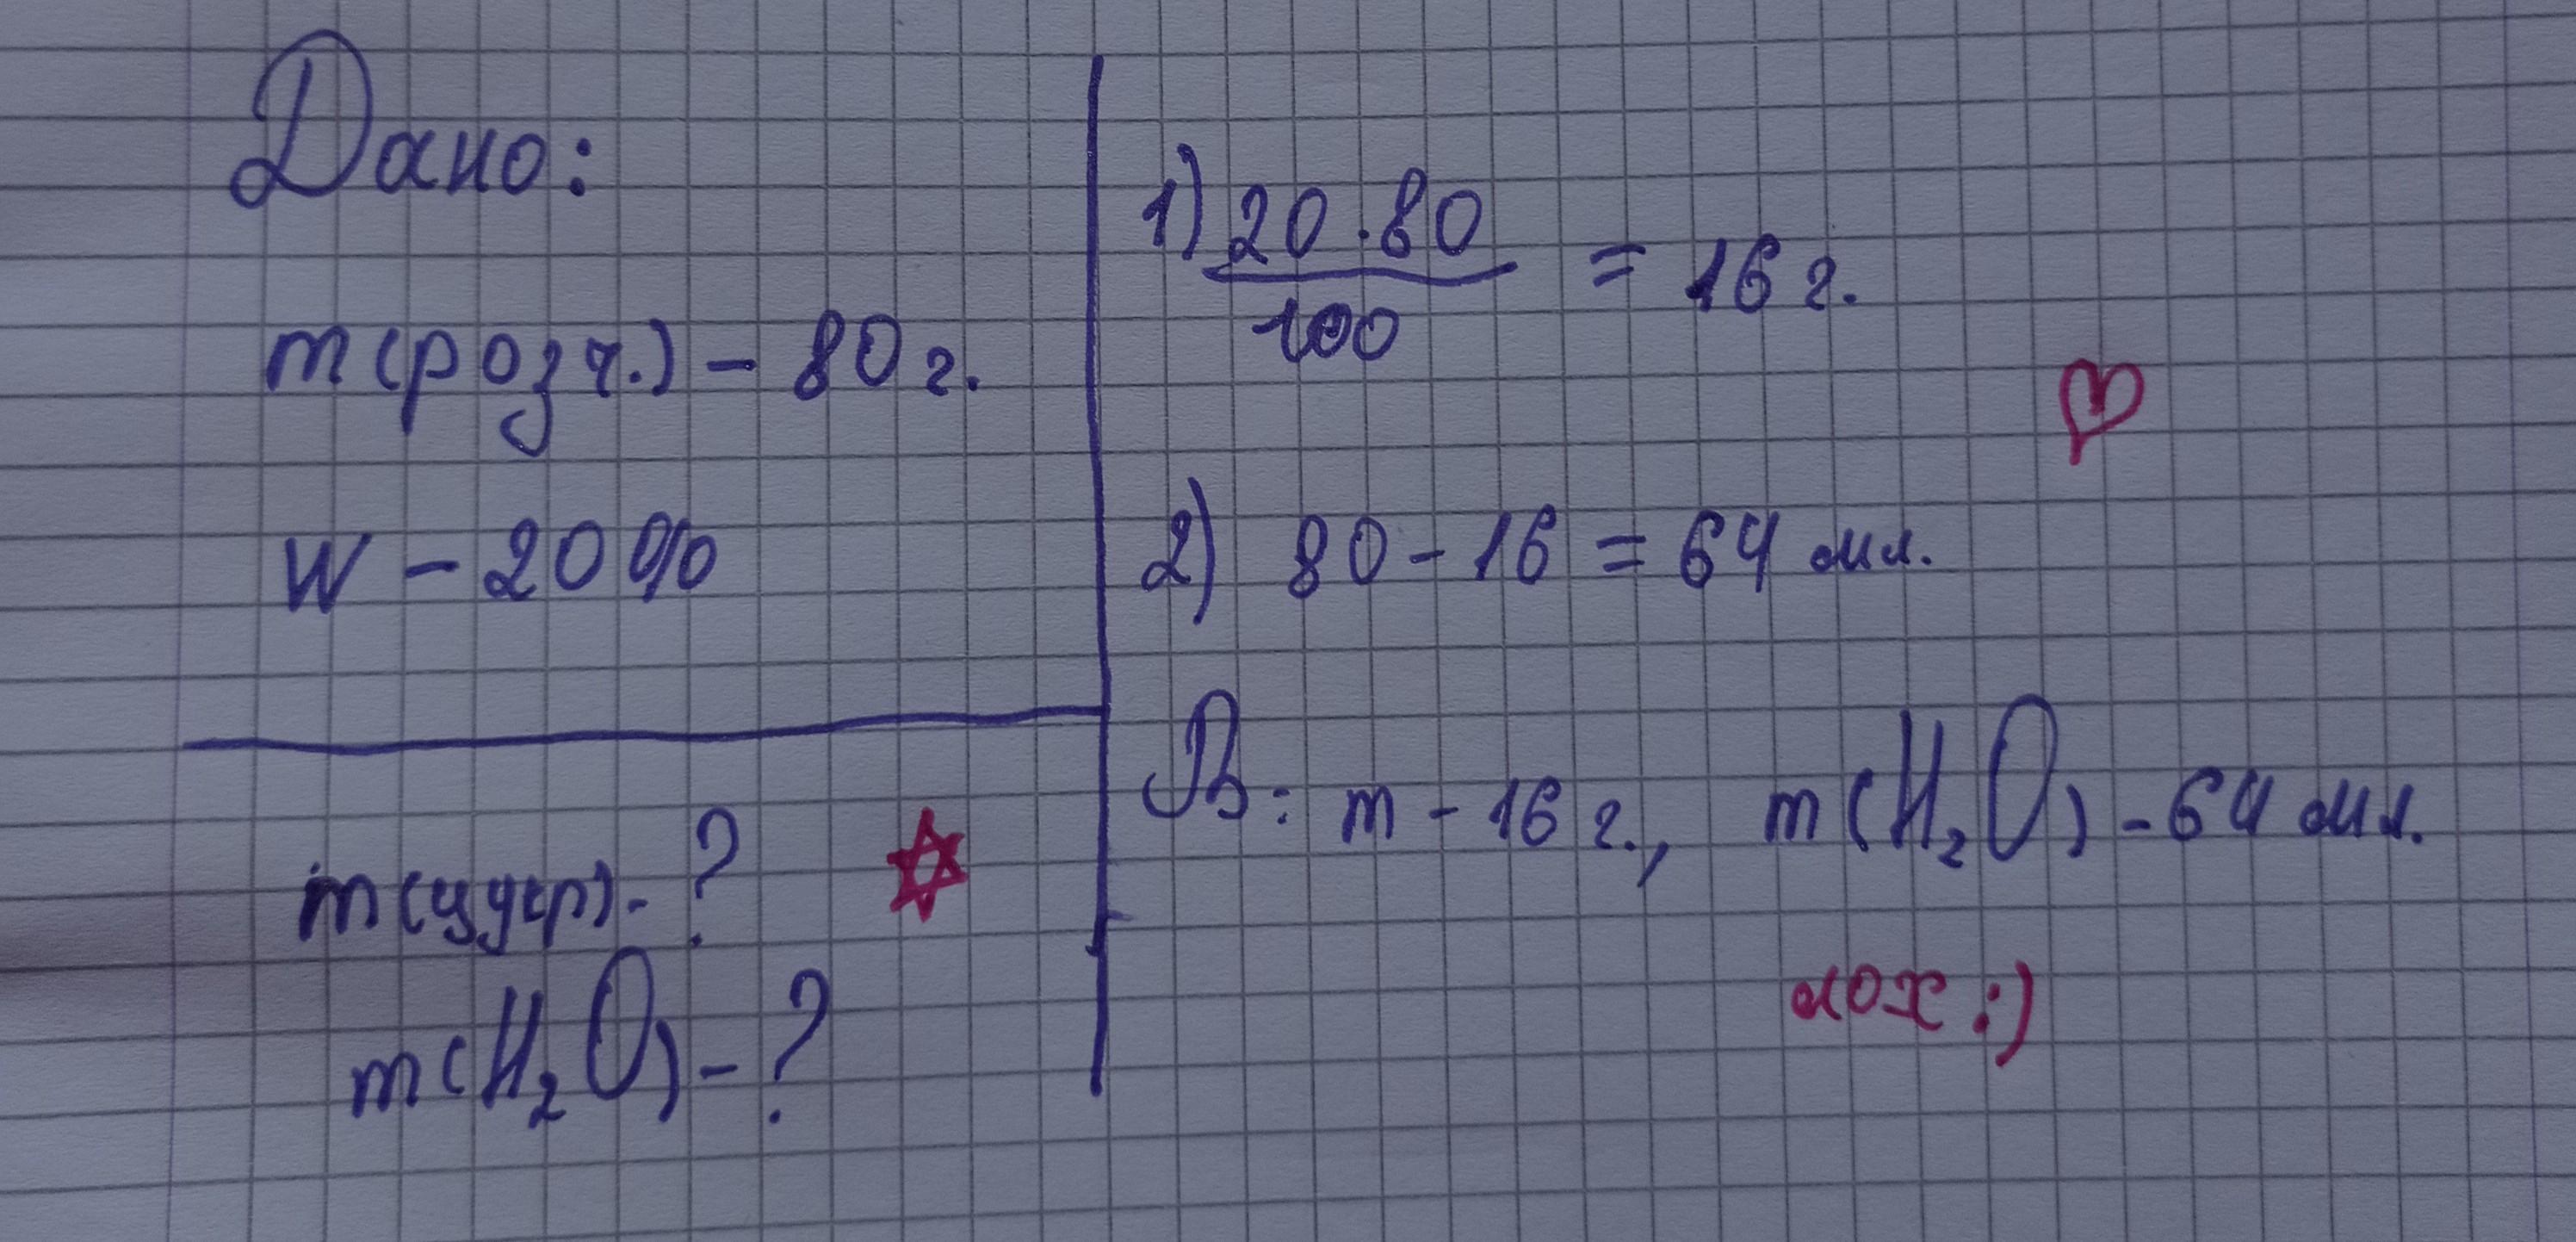 Дано:
m(розч.) - 80 г.
W - 20%
m(цукр) - ?
m(H₂O) - ?
1) 20 · 80 / 100 = 16 г.
2) 80 - 16 = 64 мл.
В: m - 16 г., m(H₂O) - 64 мл.
лох :)